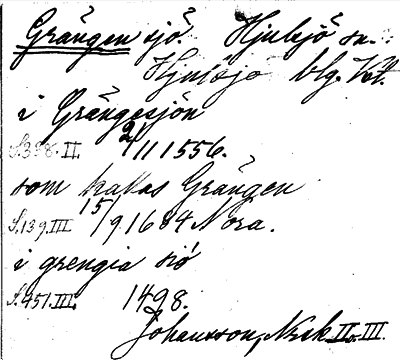 Grängen sjö. Hjulsjö sn.:
Hjulsjö blg. Vst.
i Grängesjön
S.338.II. 2/11 1556.
som kallas Grängen
S.139.III 15/9 1684 Nora.
i grengia siö
S.451.III. 1498.
Johansson, Nsk II o. III.